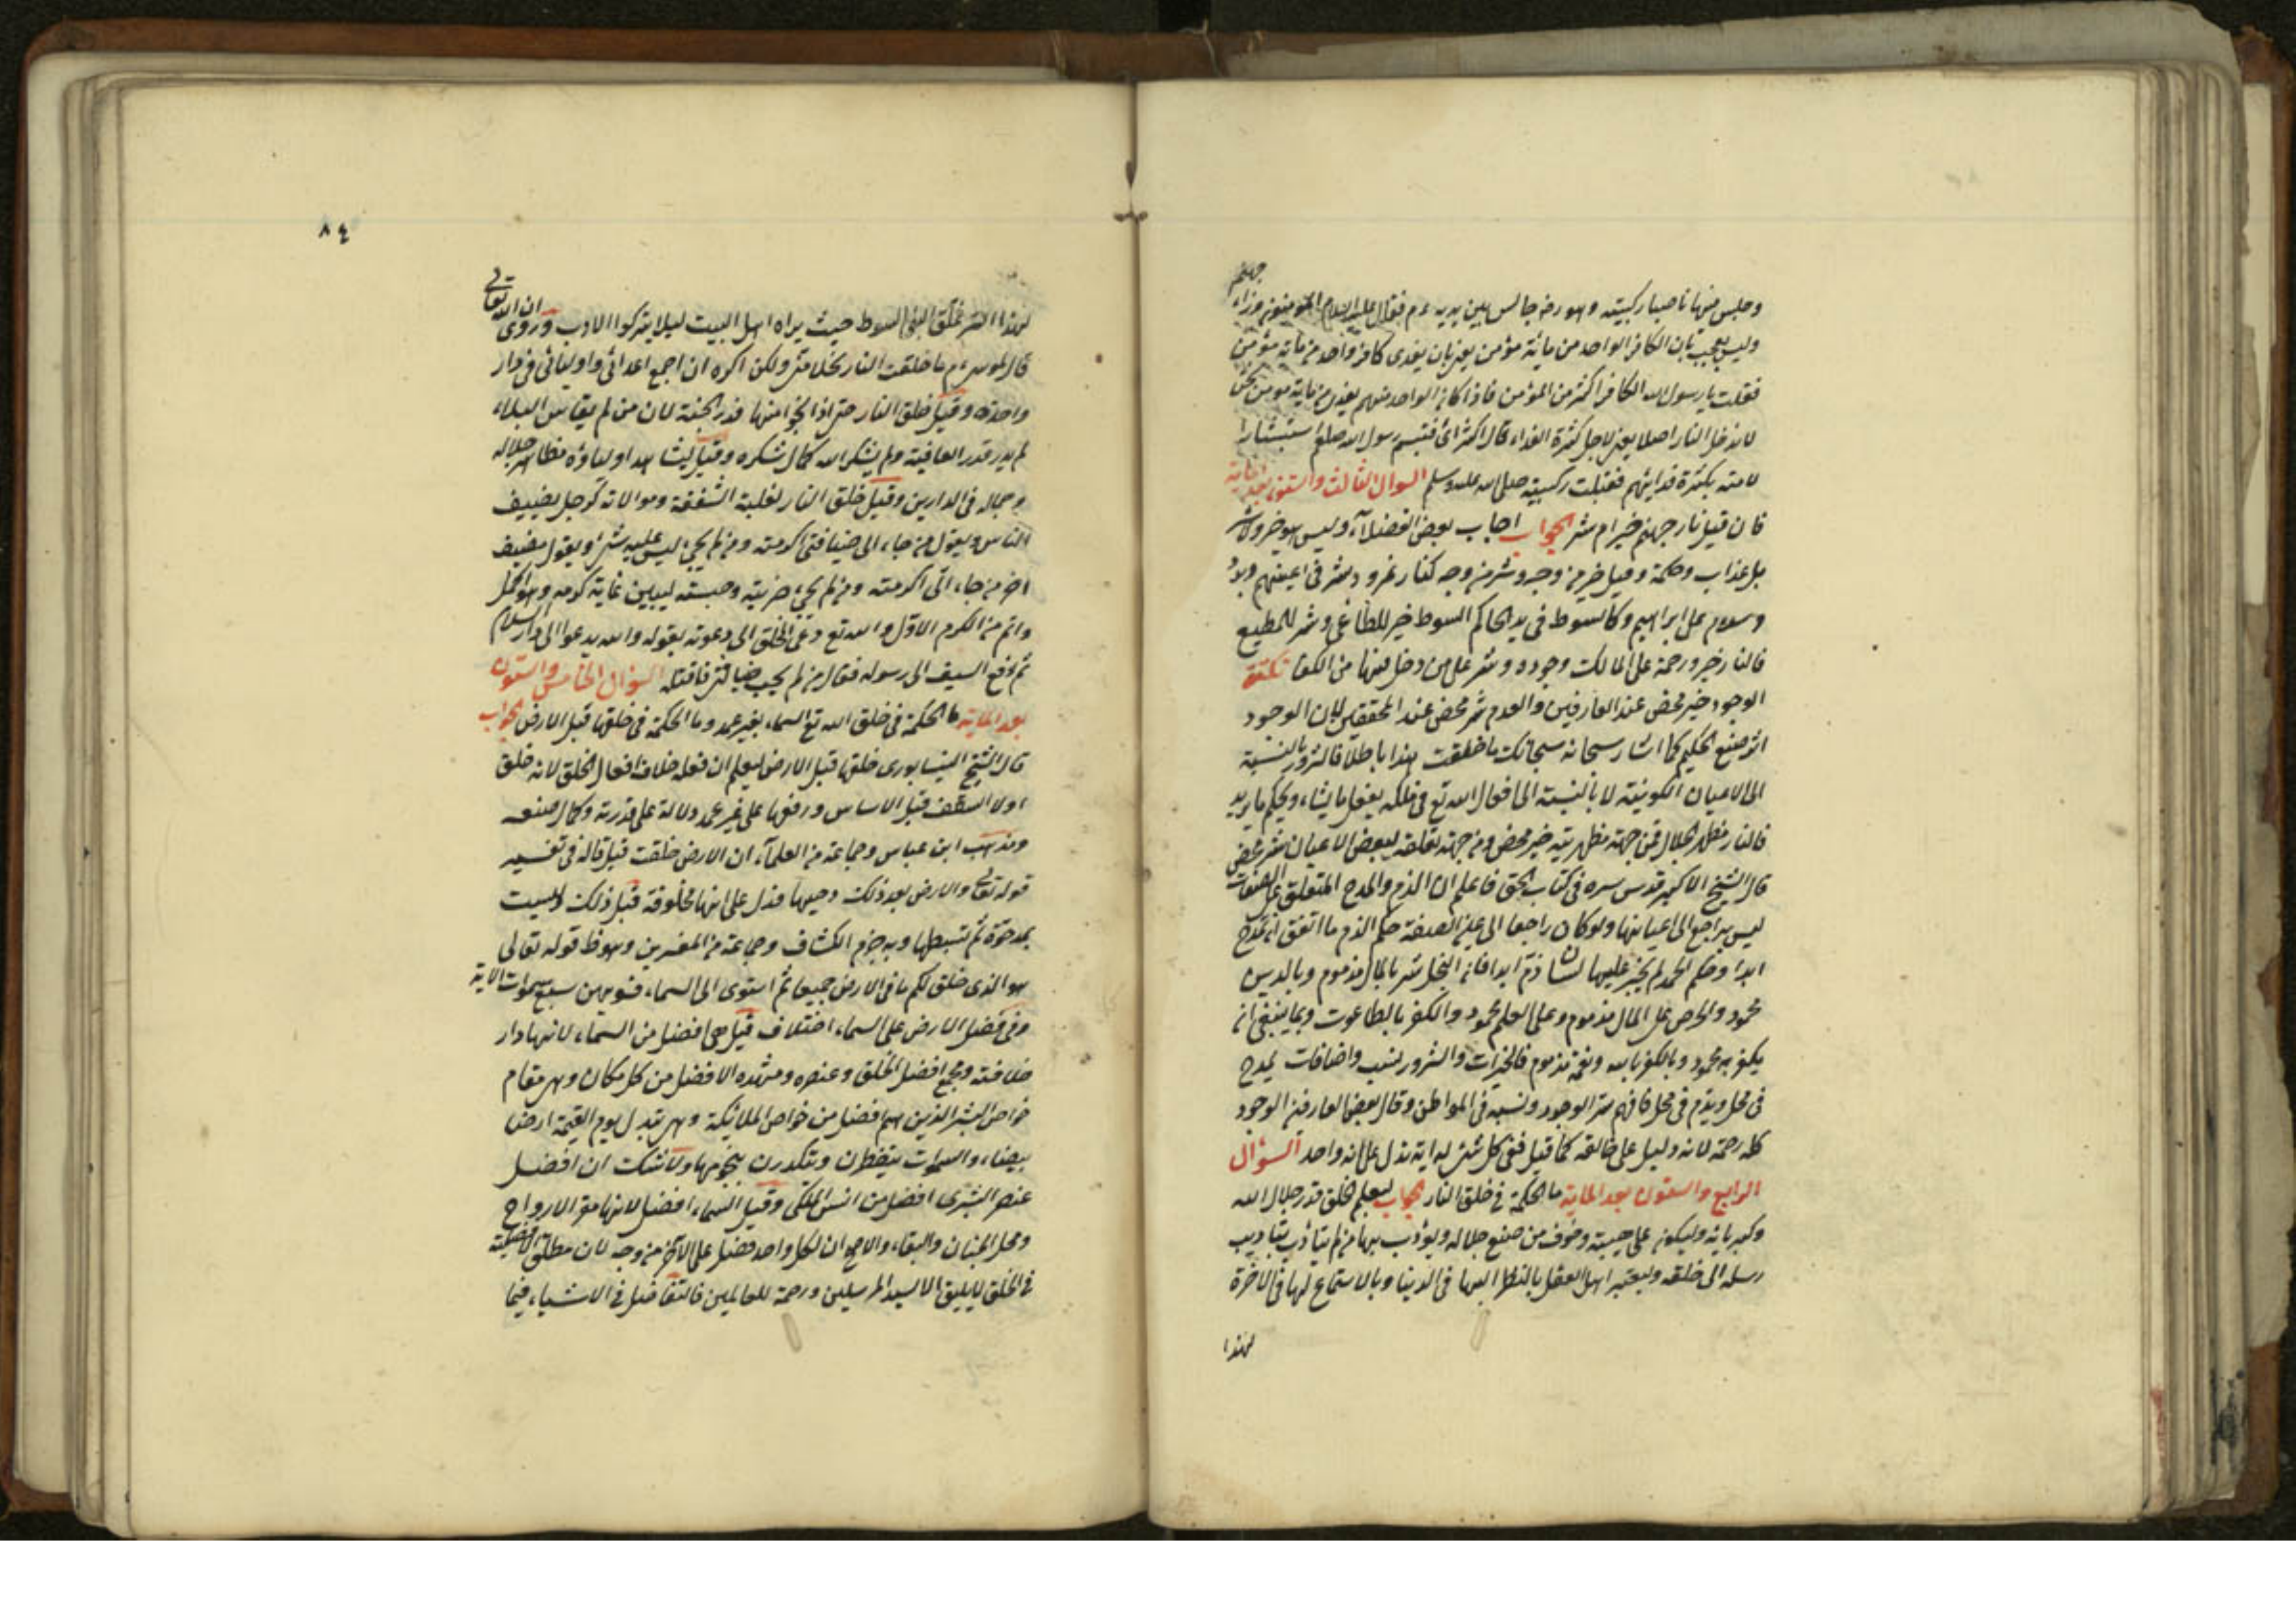 جهنم
وجلس منها ناصبا ركبتيه وهو رضه جالس بين يديه ءم فقال عليه السلام المؤمنون وزراء
وليس بعجيب بان الكافر الواحد من مائة مؤمن يعنى بان يفدى كافر واحد من ماية مؤمن
فقلت يا رسول الله الكافر اكثر من المؤمن فاذا كان الواحد منهم يفدى من ماية مؤمن نحن
لا ندخل النار اصلا يعنى لاجل كثرة الفداء قال اكثر ائ فتبسم رسول الله صلعم استبشارا
لامته بكثرة فدائهم فقبلت ركبتيه صلى الله عليه وسلم السوال الثالث والستون بعد الماية
فان قيل نار جهنم خير ام شر الجواب اجاب بعض الفضلآء وليس هو خير ولا شر
بل عذاب وحكمة وقيل خير من وجه وشر من وجه كنار نمرود شر فى اعينهم وبرد
وسلام على ابراهيم وكالسوط فى يد الحاكم السوط خير للطاغى وشر للمطيع
فالنار خير ورحمة على المالك وجوده وشر على من دخل فيها من الكفا نكتة
الوجود خير محض عند العارفين والعدم شر محض عند المحققين لان الوجود
اثر صنع الحكيم كما اشار سبحانه سبحانك ما خلقت هذا باطلا فالشرور بالنسبة
الى الاعيان الكونية لا بالنسبة الى افعال الله تع فى ملكه يفعل ما يشاء ويحكم ما يريد
فالنار مظهر الجلال فمن جهة مظهريته خير محض ومن جهة تعلقه لبعض الاعيان شر محض
قال الشيخ الاكبر قدس سره فى كتاب الحق فاعلم ان الذم والمدح المتعلق على الصفات
ليس براجع الى اعيانها ولو كان راجعا الى عين الصفة حكم الذم ما اتفق ان تمدح
ابدا وحكم الحمد لم يجز عليها لسان ذم ابدا فان البخل شر بالمال مذموم وبالدين
محمود والحرص على المال مذموم وعلى العلم محمود والكفر بالطاغوت وبما ينبغى ان
يكفر به محمود وبالكفر بالله ونعمه مذموم فالخيرات والشرور لنسب واضافات يمدح
فى محل ويذم فى محل فافهم سر الوجود ونسبه فى المواطن وقال بعض العارفين الوجود
كله رحمة لانه دليل على خالقه كما قيل ففى كل شئ له اية تدل على انه واحد السؤال
الرابع والستون بعد الماية ما الحكمة فى خلق النار الجواب ليعلم الخلق قدر جلال الله
وكبريائه وليكون على هيبته وخوف من صنع جلاله ويؤدب بها من لم يتأدب بتأديب
رسله الى خلقه وليعتبر اهل العقل بالنظر اليها فى الدنيا وبالاستماع لها فى الآخرة
لهذا
٨٤
لهذا السر علق النبى السوط حيث يراه اهل البيت ليلا يتركوا الادب وروى ان الله تعالى
قال لموسى ءم ما خلقت النار بخلا منى ولكن اكره ان اجمع اعدائى واوليائى فى دار
واحدة وقيل خلق النار حتى اذا نجوا منها قدر الجنة لان من لم يقاس البلاء
لم يدر قدر العافية ولم يشكر الله كمال شكره وقيل ليشاهد اولياؤه مظاهر جلاله
وجماله فى الدارين وقيل خلق النار لغلبة الشفقة وموالاته كرجل يضيف
الناس ويقول من جاء الى ضيافتى اكرمته ومن لم يجئ ليس عليه شئ ويقول مضيف
اخر من جاء الىّ اكرمته ومن لم يجئ ضربته وحبسته ليبين غاية كرمه وهو اكمل
واتم من الكرم الاول والله تع دعى الخلق الى دعوته بقوله والله يدعوا الى دار السلام
ثم دفع السيف الى رسوله فقال من لم يجب ضيافتى فاقتله السؤال الخامس والستون
بعد الماية ما الحكمة فى خلق الله تع السماء بغير عمد وما الحكمة فى خلقها قبل الارض الجواب
قال الشيخ النيسابورى خلقها قبل الارض ليعلم ان فعله خلاف افعال الخلق لانه خلق
اولا السقف قبل الاساس ورفعها على غير عمد دلالة على قدرته وكمال صنعه
ومذهب ابن عباس وجماعة من العلمآء ان الارض خلقت قبل قاله فى تفسير
قوله تعالى والارض بعد ذلك دحيها فدل على انها مخلوقة قبل ذلك وليست
بمدحوة ثم تبسطها وبه جزم الكشاف وجماعة من المفسرين وهو ظ قوله تعالى
هو الذى خلق لكم ما فى الارض جميعا ثم استوى الى السماء فسويهن سبع سموات الاية
وفى فضل الارض على السماء اختلاف قيل هى افضل من السماء لانها دار
خلافته ومجمع افضل الخلق وعنصره ومرقده الافضل من كل مكان وهى مقام
خواص البشر الذين هم افضل من خواص الملائكة وهى تبدل يوم القيمة ارضا
بيضاء والسموات يتفطرن وتنكدرن نجومها ولا شك ان افضل
عنصر البشرى افضل من انس الملكى وقيل السماء افضل لانها مقر الارواح
ومحل الجنان والبقاء والاصح ان لكل واحد فضل على الآخر من وجه لان مطلق الافضلية
فى الخلق لا يليق الا لسيد المرسلين ورحمة للعالمين فالتفاضل فى الاشياء فيما